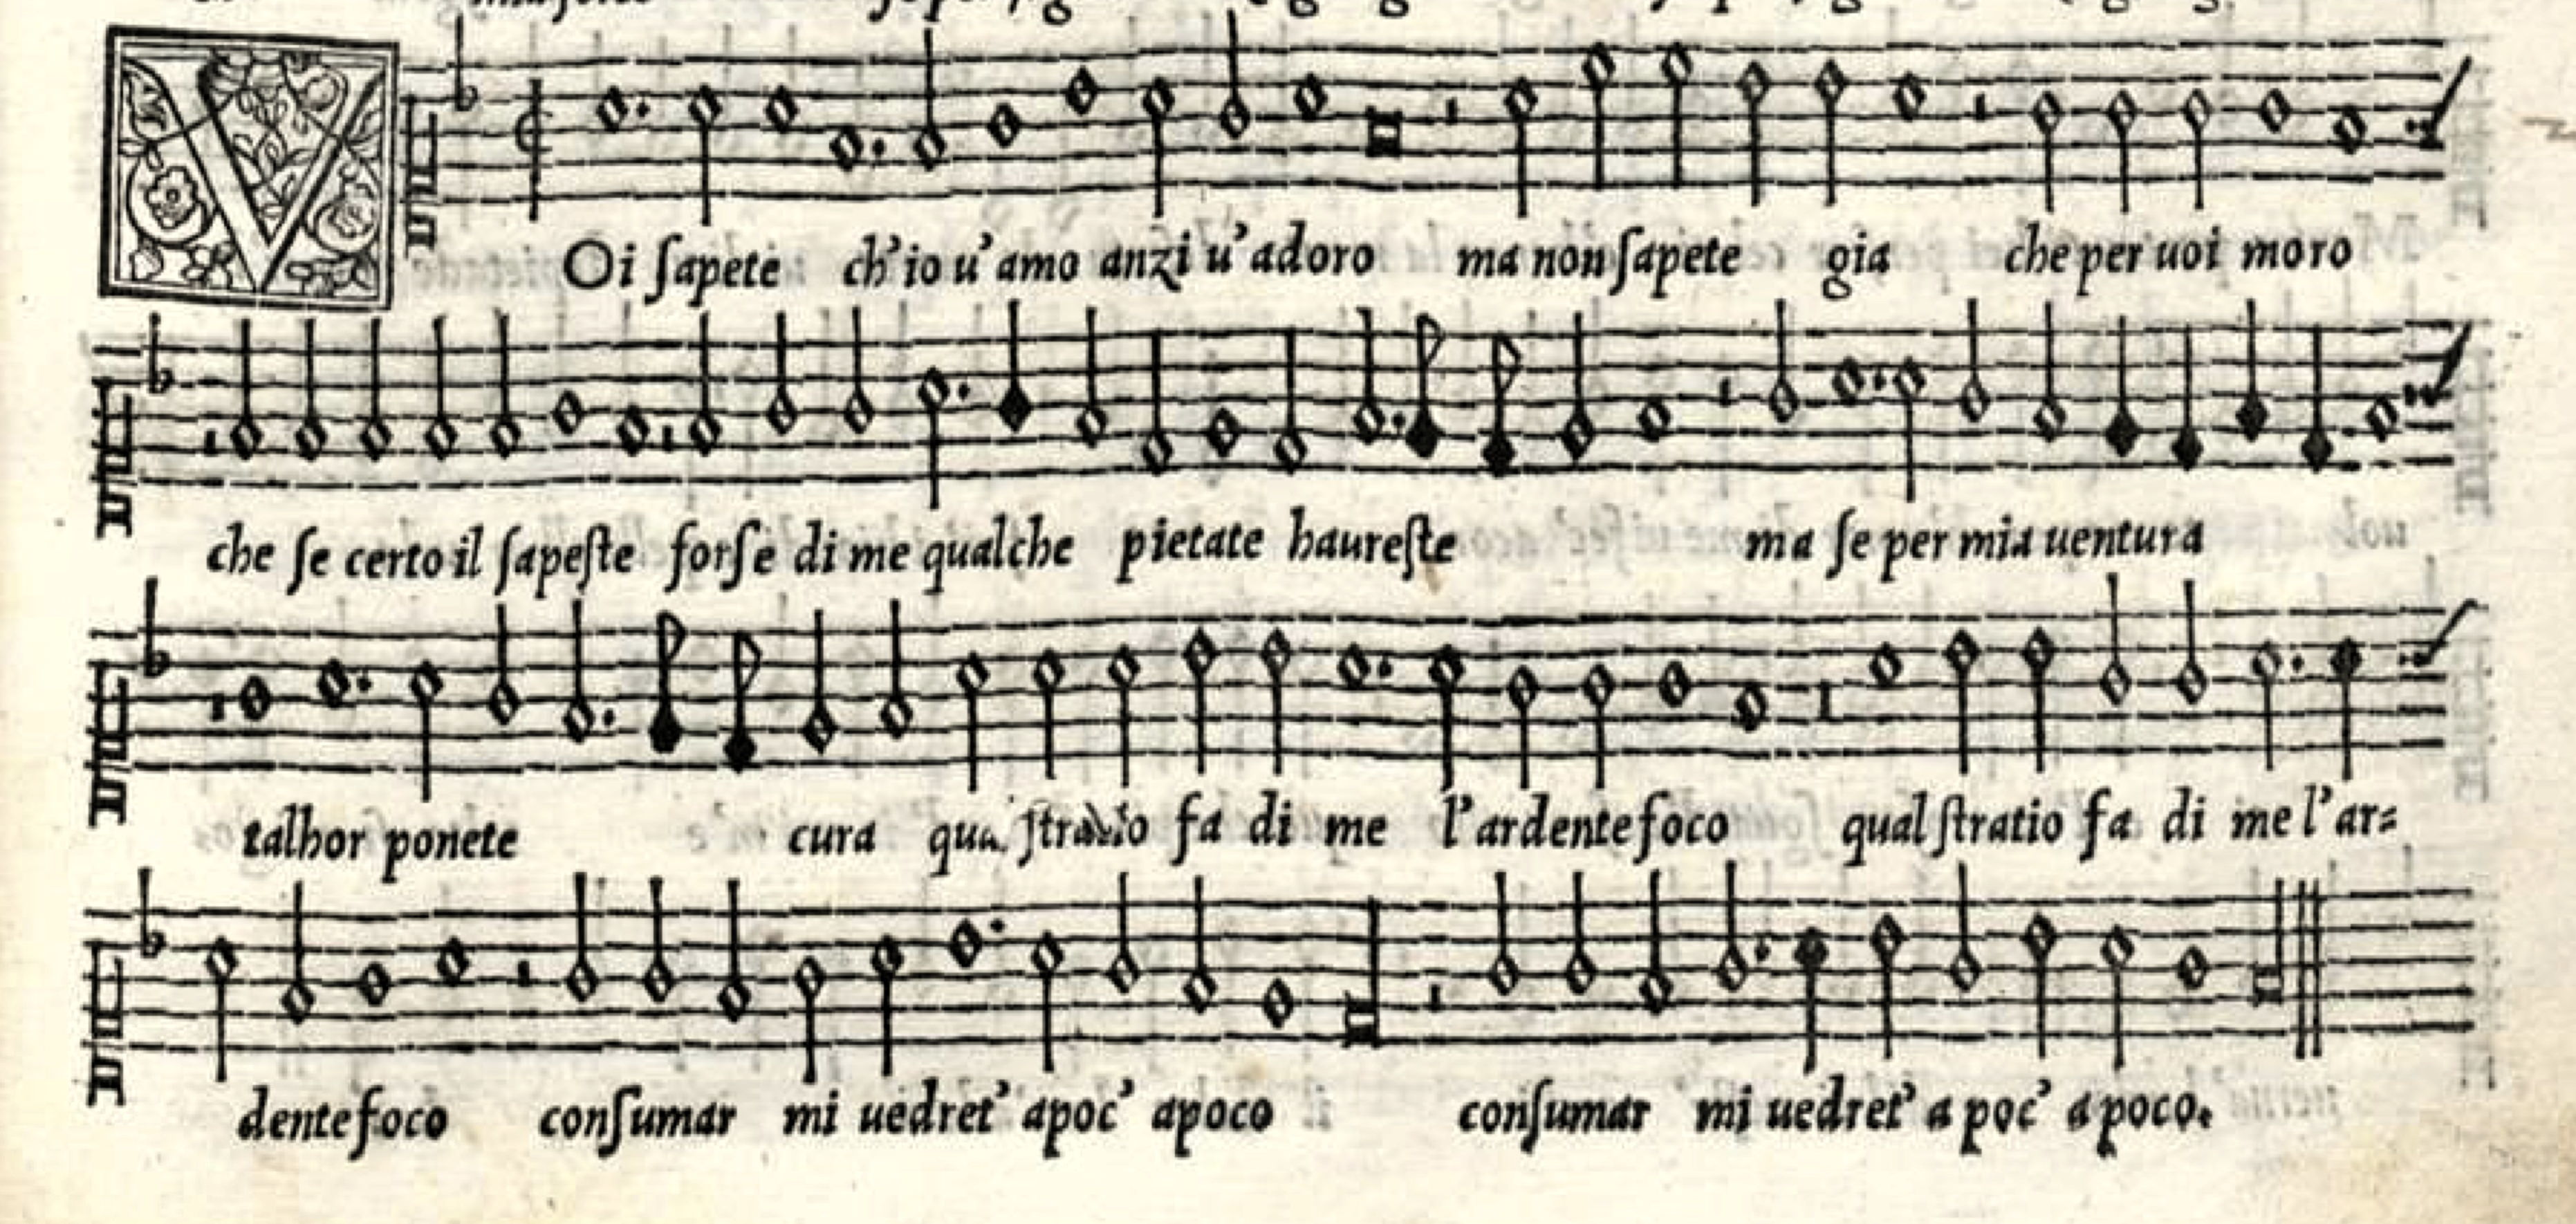 VOi ſapete ch'io u'amo anzi u'adoro ma non ſapete gia che per uoi moro
che ſe certo il ſapeſte forſe di me qualche pietate haureſte ma ſe per mia uentura
talhor ponete cura ſtratio fa di me l'ardente foco qual ſtratio fa di me l'ar=
dente foco conſumar mi uedret' apoc' apoco conſumar mi uedret' a poc' a poco.